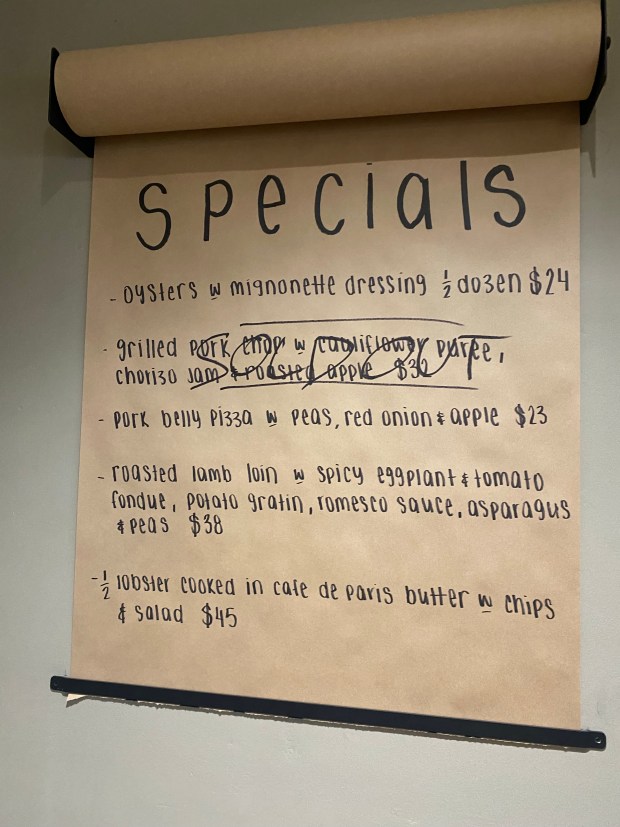 Specials
- oysters w mignonette dressing ½ dozen $24
- grilled pork chop w cauliflower puree,
chorizo jam & roasted apple
- pork belly pizza w peas, red onion & apple $23
- roasted lamb loin w spicy eggplant & tomato
fondue, potato gratin, romesco sauce, asparagus
& peas $38
- ½ lobster cooked in cafe de paris butter w chips
& salad $45